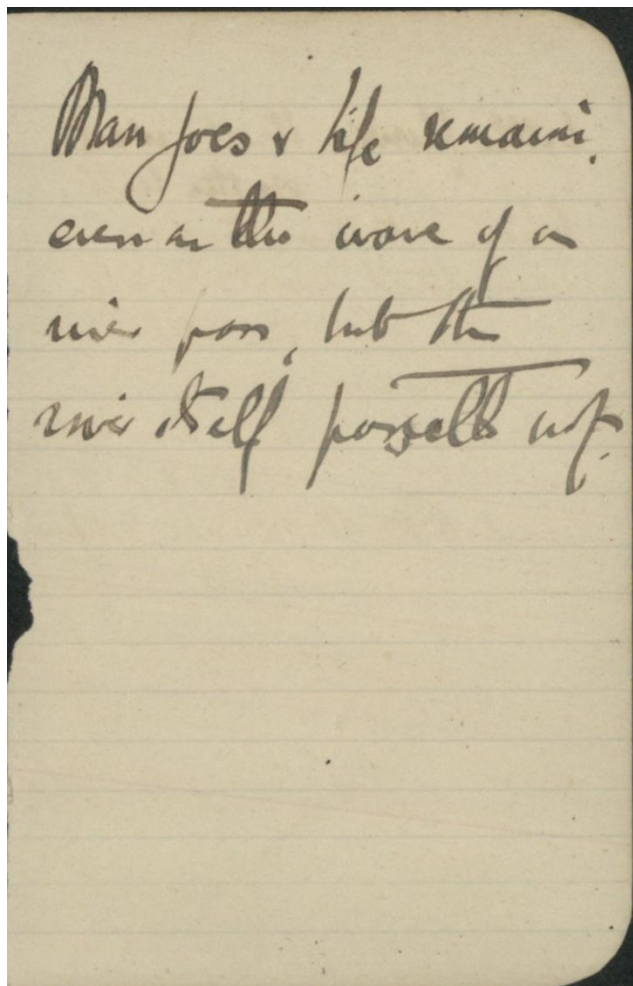 Man goes & life remains,
even as the wave of a
river pass, but the
river itself passeth not.